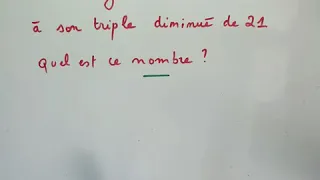 à son triple diminué de 21
quel est ce nombre ?